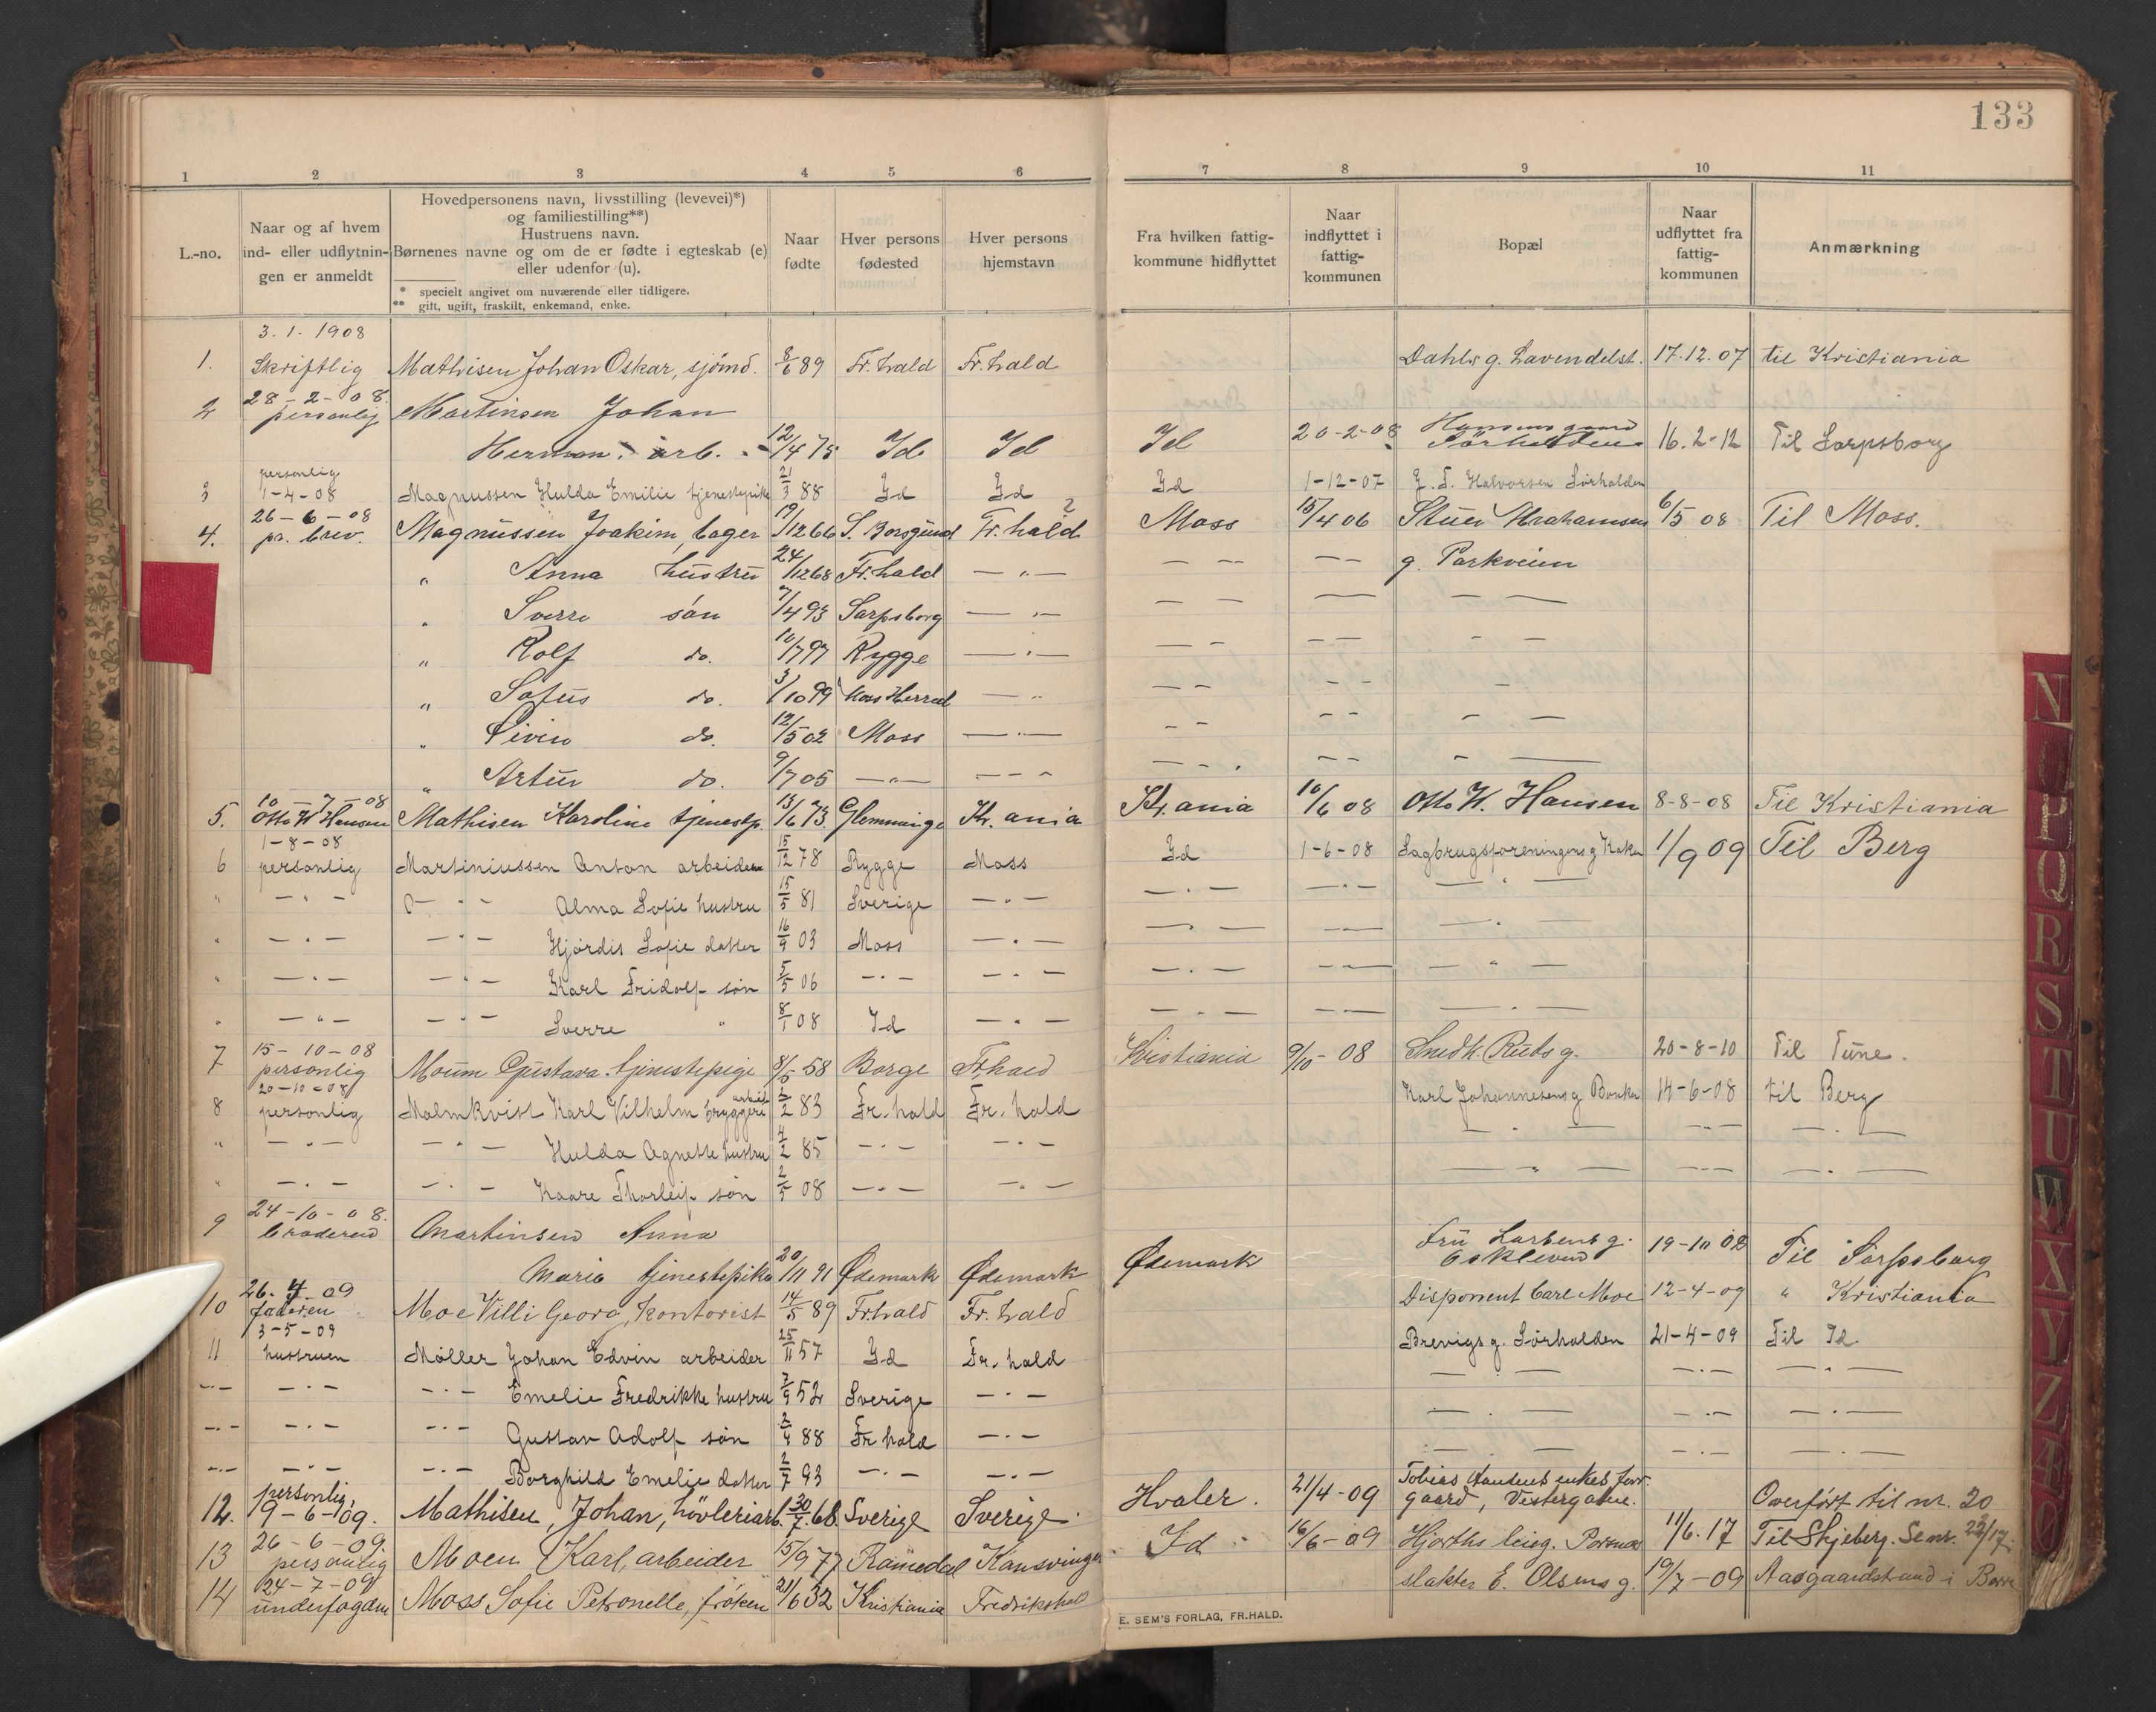 133
1 2 3 4 5 6 7 8 9 10 11
L.-no.
Naar og af hvem
ind- eller udflytnin-
gen er anmeldt
Hovedpersonens navn, livsstilling (levevei)*)
og familiestilling**)
Hustruens navn.
Børnenes navne og om de er fødte i egteskab (e)
eller udenfor (u).
* specielt angivet om nuværende eller tidligere.
** gift, ugift, fraskilt, enkemand, enke.
Naar
fødte
Hver persons
fødested
Hver persons
hjemstavn
Fra hvilken fattig-
kommune hidflyttet
Naar
indflyttet i
fattig-
kommunen
Bopæl
Naar
udflyttet fra
fattig-
kommunen
Anmærkning
3. 1. 1908
1. Skriftlig Mathisen Johan Oskar, sjömd. 8/6 89 Fr.hald Fr.hald Dahls g. Lavendelst. 17.12.07 til Kristiania
28-2-08.
2 personlig Martinsen Johan
Herman. arb. 12/4 75 Id Id Id 20-2-08 Hansensgaard Sørhalden 16.2-12 Til Sarpsborg
personlig
3 1-4-08 Magnussen Hulda Emilie tjenestepike 21/3 88 Id Id Id 1-12-07 J. F. Halvorsen Sørhalden
26-6-08
4. pr. brev. Magnussen Joakim, bager 19/12 66 S. Borgund Fr.hald ? Moss 15/4 06 Stuer Abrahamsen 6/5 08 Til Moss.
" Anna hustru 24/12 68 Fr.hald — " — — — — — g. Parkveien
" Sverre søn 7/4 93 Sarpsborg — " —
" Rolf do. 10/7 97 Rygge — " —
" Sofus do. 3/10 99 Moss Herred — "
" Eivin do. 12/5 02 Moss — " —
" Artur do. 9/7 05 — " — — — —
10-7-08
5. Otto W Hansen Mathisen Karoline tjenestp. 13/6 73. Glemminge Kr.ania Kr.ania 10/6 08 Otto W. Hansen 8-8-08 Til Kristiania
1-8-08
6 personlig Martiniussen Anton arbeider 15/12 78 Rygge Moss Id 1-6-08 Sagbrugsforeningens g 1/9 09 Til Berg
" — " — — " — Alma Sofie hustru 15/5 81 Sverige — " —
" — " — — " — Hjørdis Sofie datter 16/9 03 Moss — " —
" — " — — " — Karl Fridolf søn 5/5 06 — " — — " —
" — " — — " — Sverre " 8/1 08 Id — " —
15-10-08
7 personlig Moum Gustava tjenestepige 8/5-58 Borge Fr.hald Kristiania 9/10-08 Smedk. Ruds g. 20-8-10 Til Tune.
20-10-08
8 personlig Malmkvist Karl Vilhelm bryggeriarbeid 2/2 83 Fr.hald Fr.hald Karl Johannesens g Banken 14-6-08 til Berg
" — " — — " — Hulda Agnette hustru 4/2 85 — " — — " —
" — " — — " — Kaare Thorleif søn 2/5 08 — " — — " —
24-10-08.
9 broderen Martinsen Anna
Marie tjenestepike 20/11 91 Ødemark Ødemark Ødemark Fru Larsens g. Oskleven 19-10 08 Til Sarpsborg
26-4-09
10 faderen Moe Villi Georg, Kontorist 14/5 89 Fr.hald Fr.hald Disponent Carl Moe 12-4-09 " Kristiania
3-5-09
11 hustruen Møller Johan Edvin arbeider 25/11 57 Id Fr.hald Brevigs g. Sørhalden 21-4-09 Til Id
— " — — " — — " — Emelie Fredrikke hustru 7/9 52 Sverige — " —
— " — — " — — " — Gustav Adolf søn 2/4 88 Fr.hald — " —
— " — — " — — " — Borghild Emelie datter 2/7 93 — " — — " —
personlig,
12. 19-6-09. Mathisen, Johan, hövleriarb. 30/7 68. Sverige Sverige. Hvaler. 21/4-09 Tobias enkes forr. gaard, Vestergaden. Overført til nr. 20
26-6-09.
13 personlig Moen Karl, arbeider 15/9 77 Romedal Kongsvinger Id 16/6-09 Hjorths leieg. Porsnes 11/6.17 Til Skjeberg. Se nr. 22/17.
24-7-09
14 underfogden Moss Sofie Petronelle, frøken 21/6 32 Kristiania Fredrikshald slakter E. Olsens g. 19/7-09 Aasgaardstrand i Borre
E. SEM'S FORLAG, FR.HALD.
N O P Q R S T U W X Y Z Æ Ø